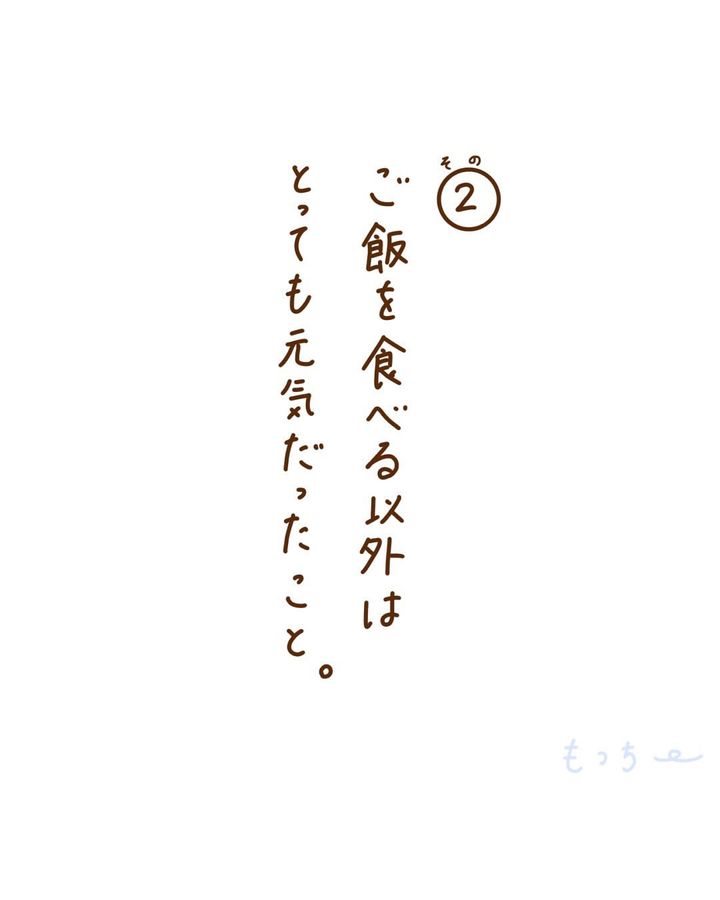 その
②
ご飯を食べる以外は
とっても元気だったこと。
もっちー